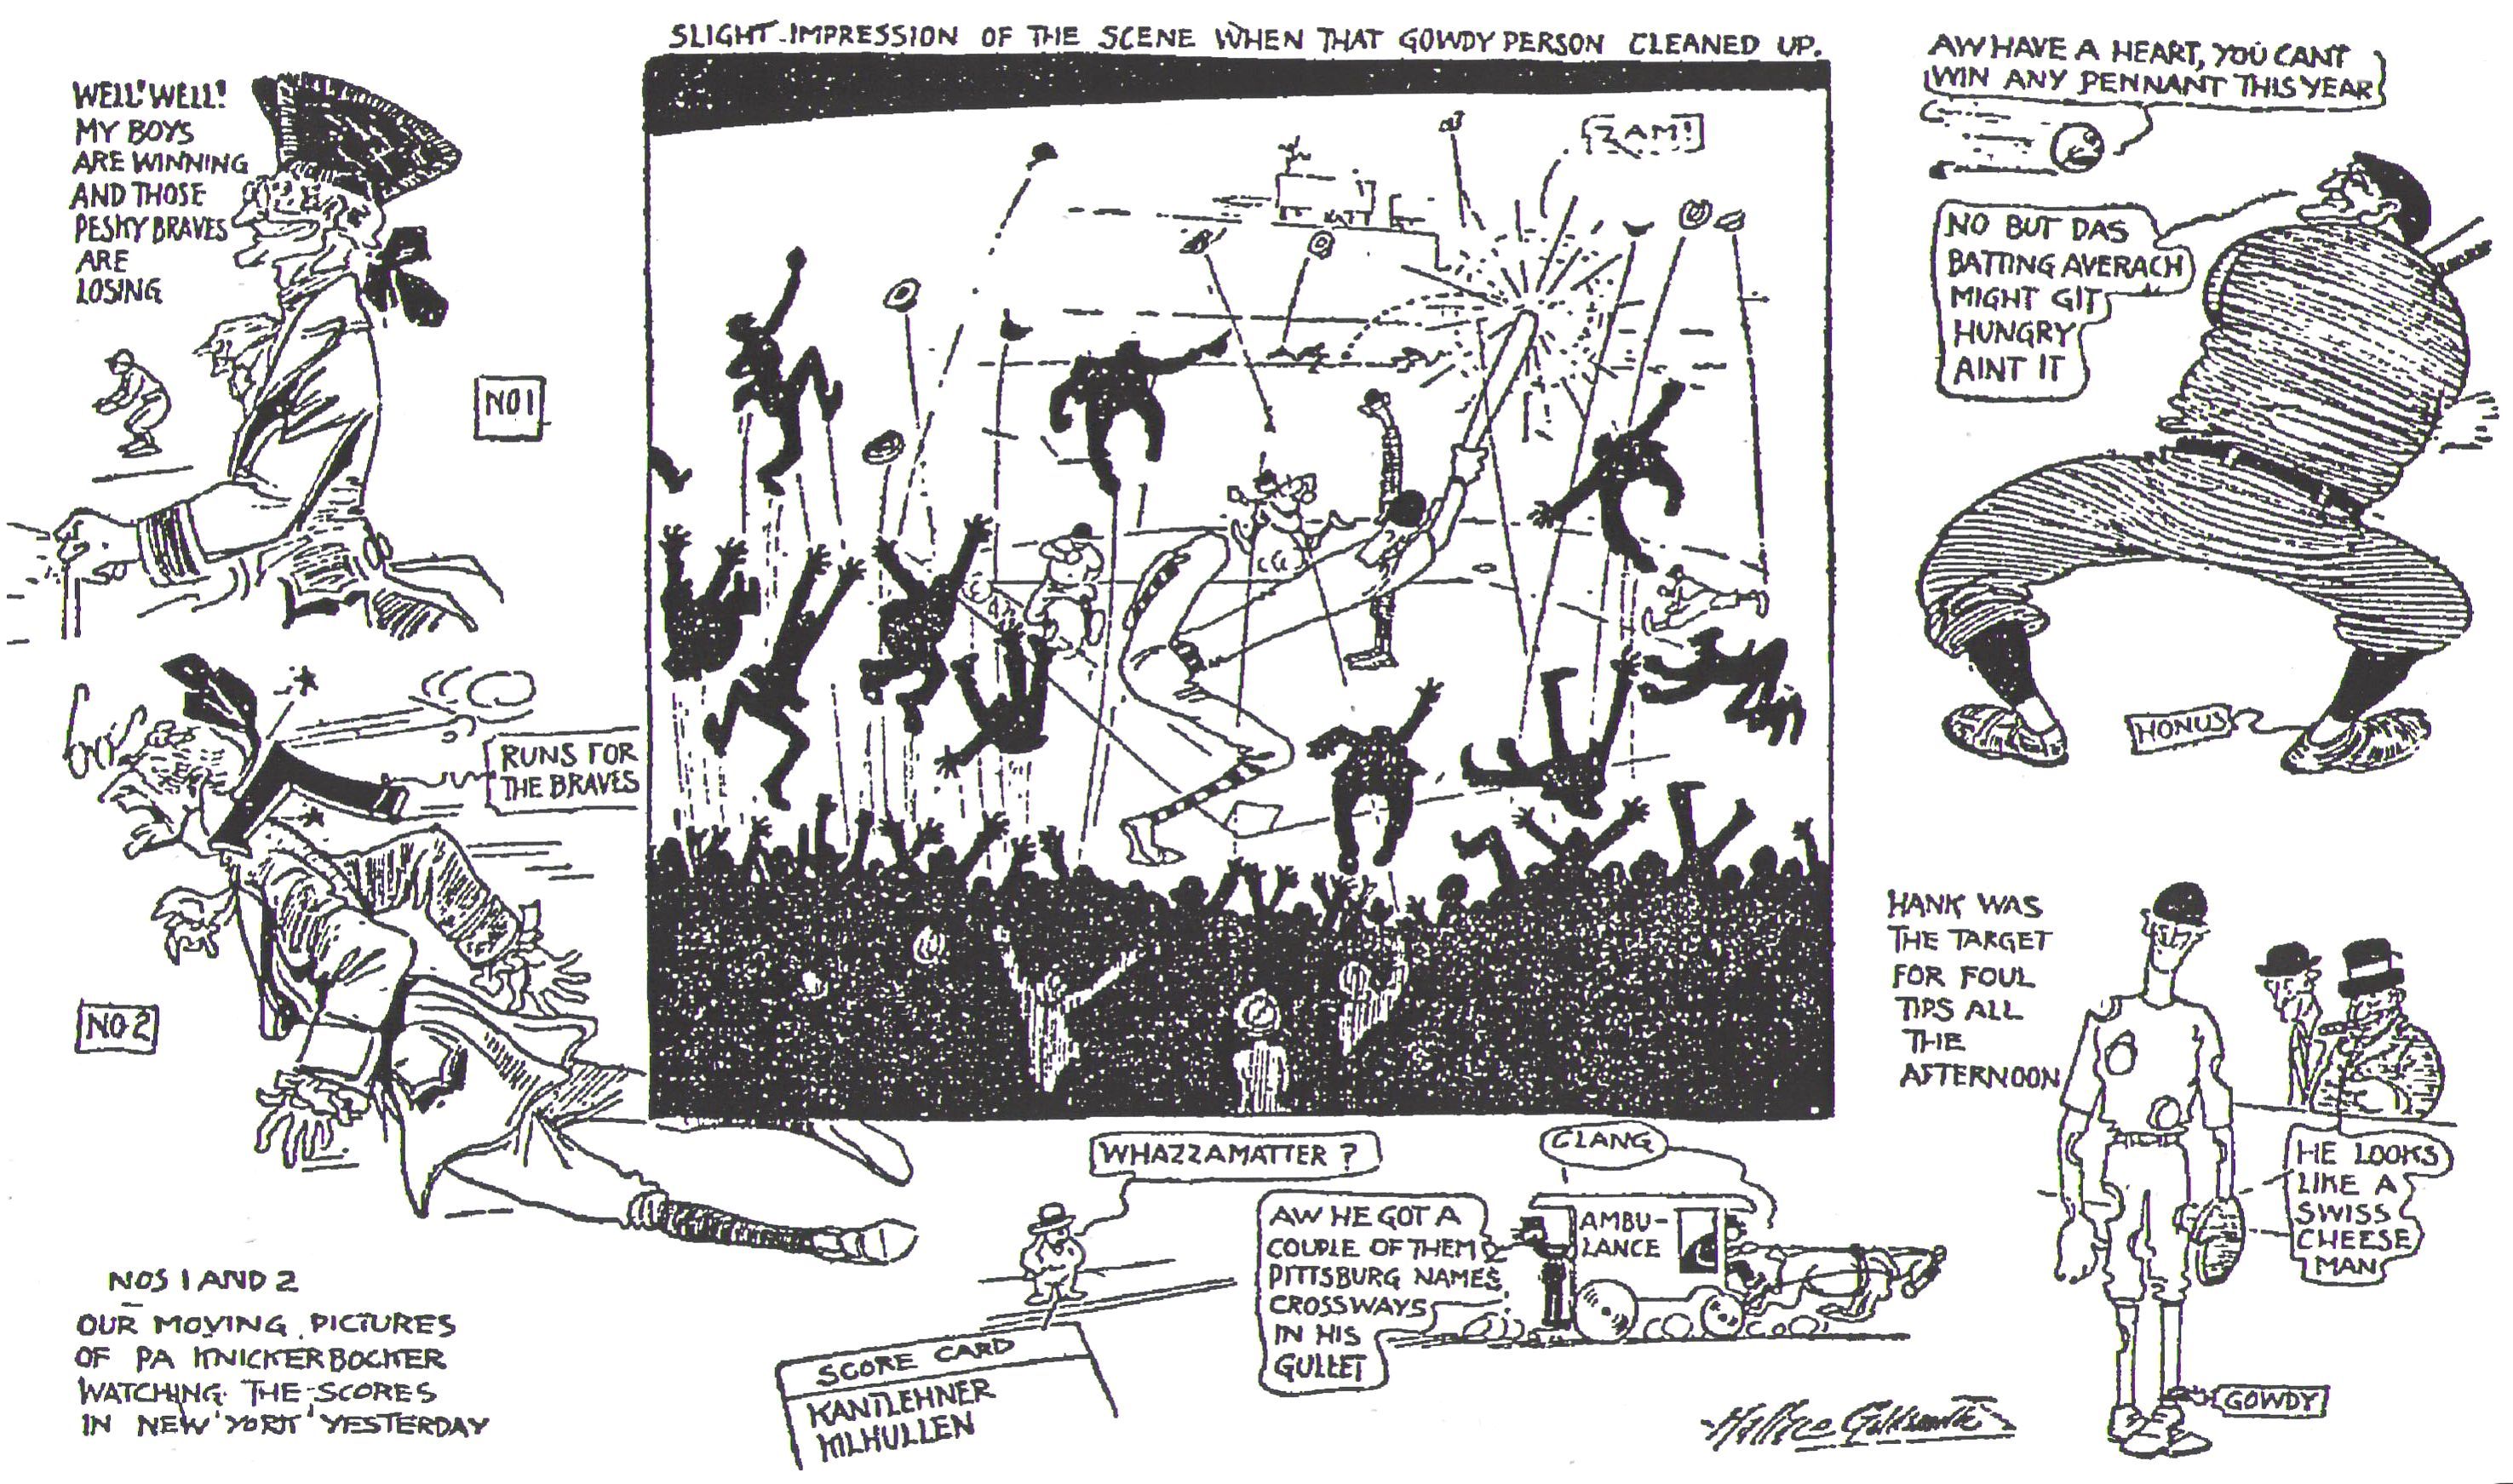 SLIGHT IMPRESSION OF THE SCENE WHEN THAT GOWDY PERSON CLEANED UP.
WELL! WELL!
MY BOYS
ARE WINNING
AND THOSE
PESKY BRAVES
ARE
LOSING
NO 1
RUNS FOR
THE BRAVES
NO 2
NOS 1 AND 2
OUR MOVING PICTURES
OF PA KNICKERBOCKER
WATCHING THE SCORES
IN NEW YORK YESTERDAY
ZAM!
AW HAVE A HEART, YOU CANT
WIN ANY PENNANT THIS YEAR
NO BUT DAS
BATTING AVERACH
MIGHT GIT
HUNGRY
AINT IT
HONUS
HANK WAS
THE TARGET
FOR FOUL
TIPS ALL
THE
AFTERNOON
HE LOOKS
LIKE A
SWISS
CHEESE
MAN
GOWDY
WHAZZAMATTER?
SCORE CARD
KANTLEHNER
KILHULLEN
CLANG
AW HE GOT A
COUPLE OF THEM
PITTSBURG NAMES
CROSSWAYS
IN HIS
GULLET
AMBU-
LANCE